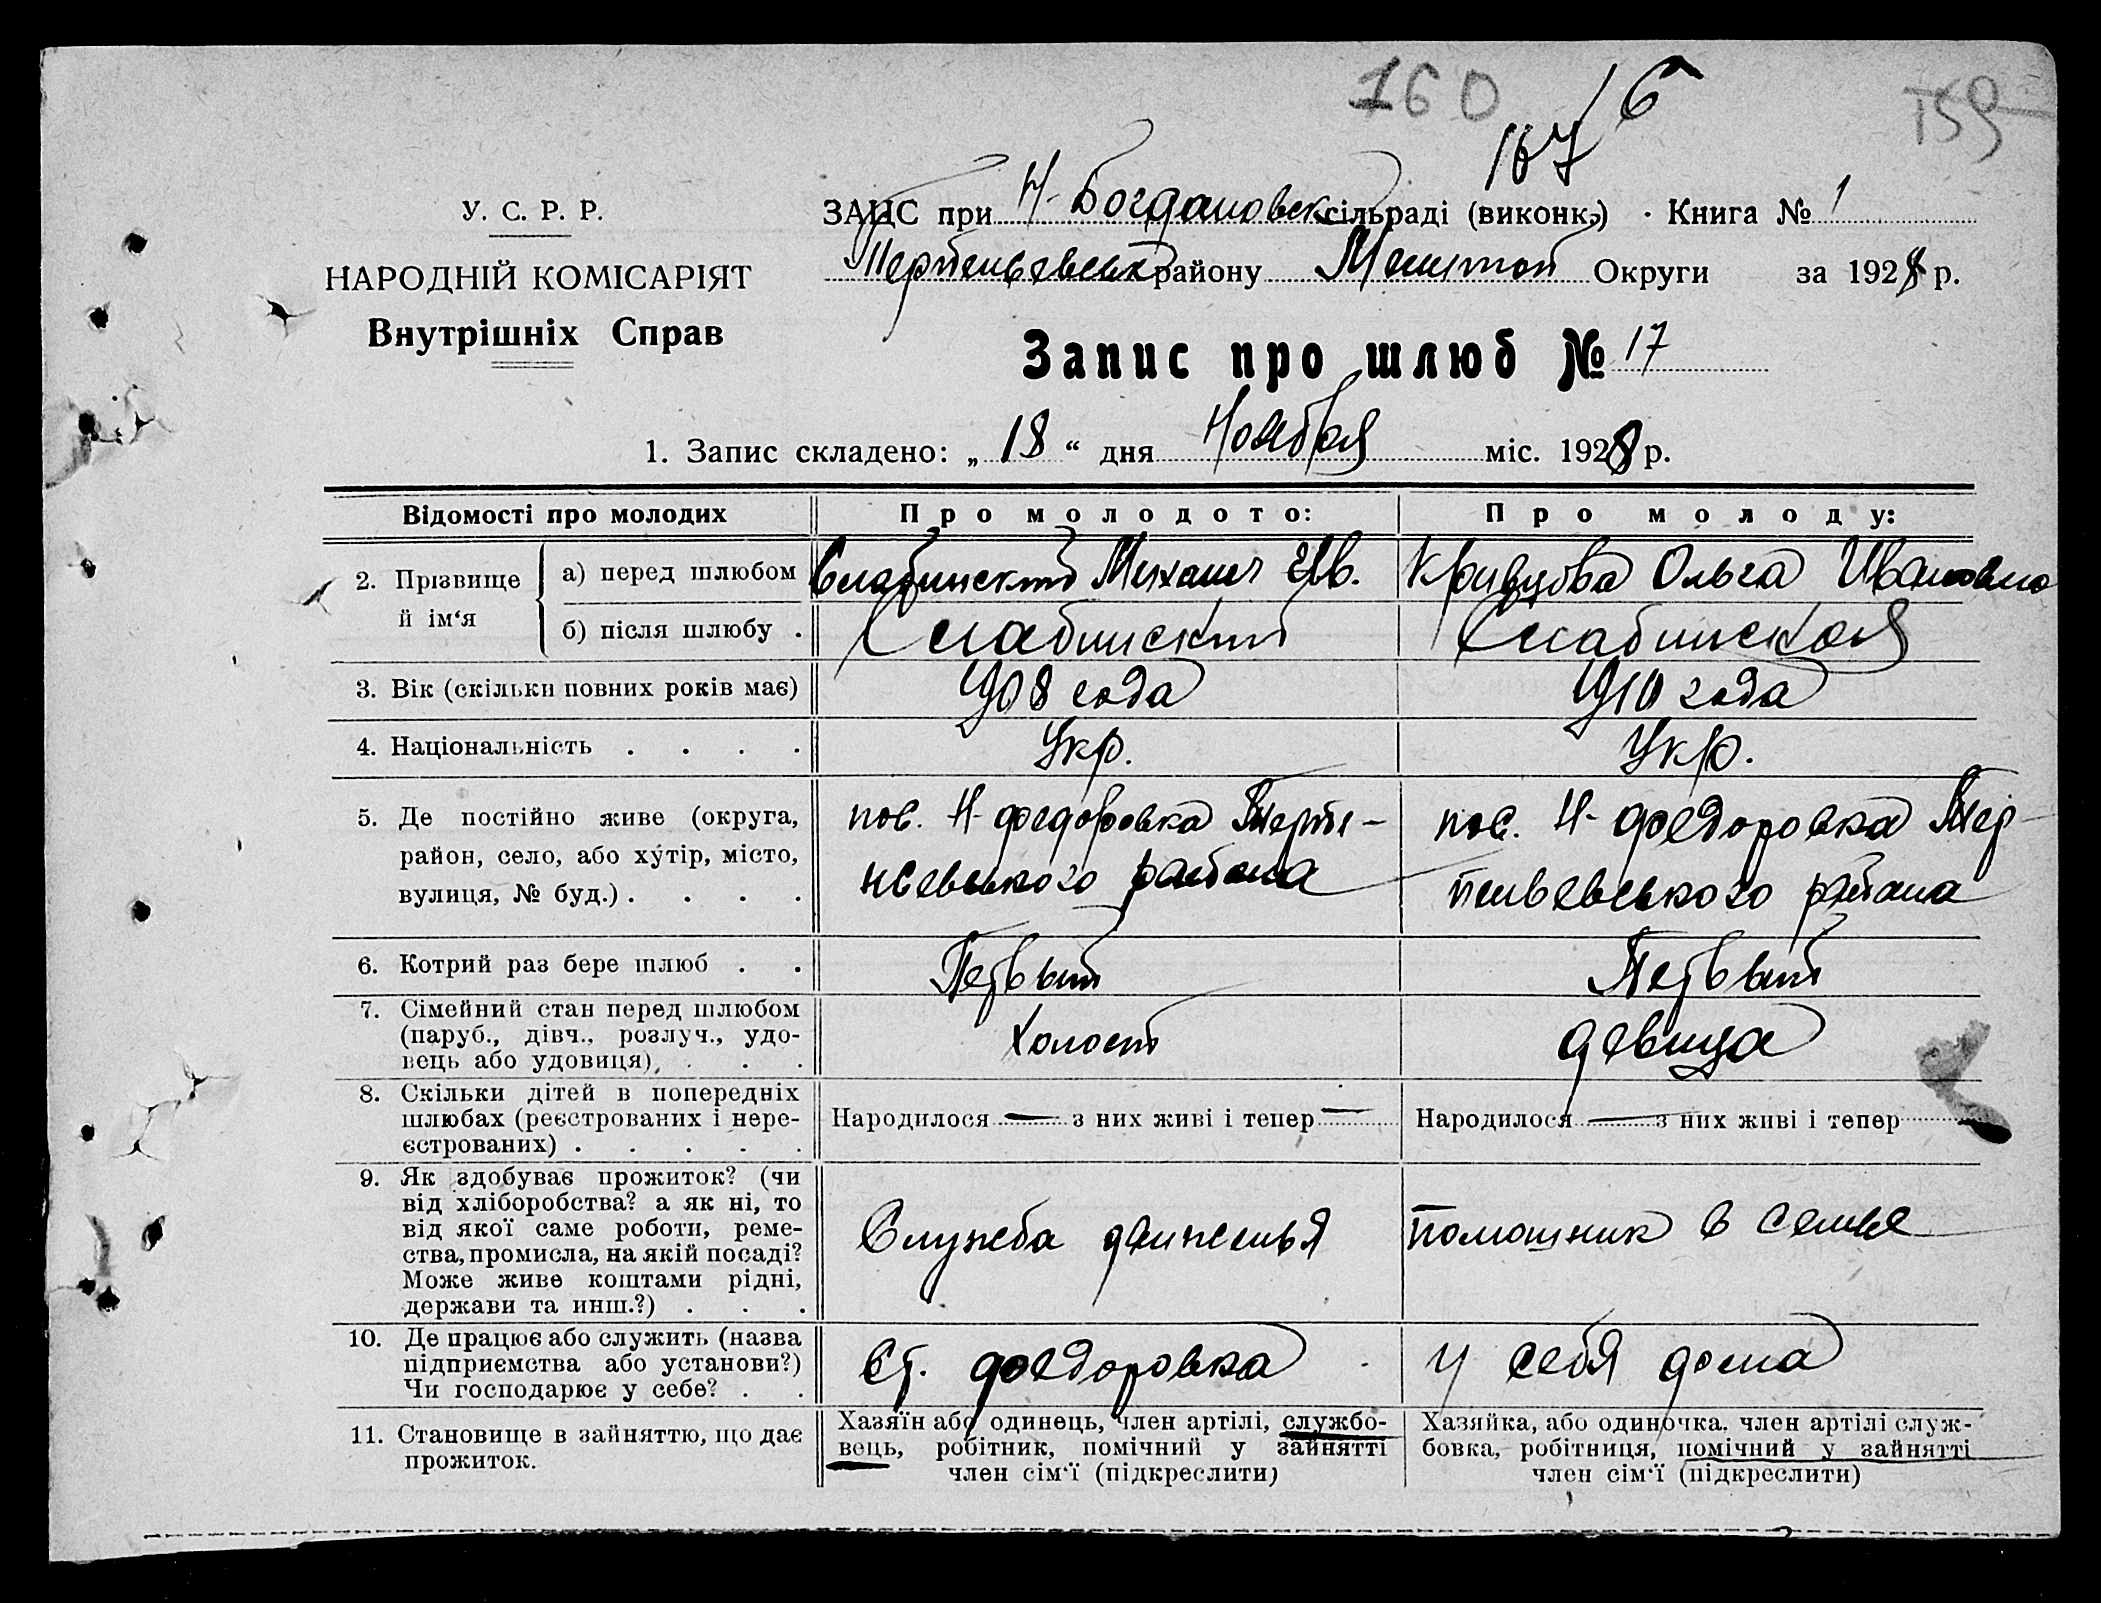 160
167
6
159
У. С. Р. Р.
НАРОДНІЙ КОМІСАРІЯТ
Внутрішніх Справ
ЗАЦС при Н-Богдановск сільраді (виконк.) Книга № 1
району Мелитоп Округи за 1928 р.
Запис про шлюб № 17
1. Запис складено: „ 18 “ дня Ноября міс. 1928 р.
Відомості про молодих Про молодого: Про молоду:
2. Прізвище й ім‘я
а) перед шлюбом Слабинский Михаил Ив. Кривцова Ольга Ивановна
б) після шлюбу . Слабинский Слабинская
3. Вік (скільки повних років має) 1908 года 1910 года
4. Національність . . . . Укр. Укр.
5. Де постійно живе (округа,
район, село, або хутір, місто,
вулиця, № буд.) . . . . .
пос. Н-Федоровка Терпе-
ньевського района
пос. Н-Федоровка Тер-
пеньевського района
6. Котрий раз бере шлюб . . Первый Первый
7. Сімейний стан перед шлюбом
(паруб., дівч., розлуч., удо-
вець або удовиця) . . . Холост девица
8. Скільки дітей в попередніх
шлюбах (реєстрованих і нере-
єстрованих) . . . . .
Народилося — з них живі і тепер —
Народилося — з них живі і тепер
9. Як здобуває прожиток? (чи
від хліборобства? а як ні, то
від якої саме роботи, реме-
ства, промисла, на якій посаді?
Може живе коштами рідні,
держави та инш.?) . . .
Служба движенья
помощник в семье
10. Де працює або служить (назва
підприємства або установи?)
Чи господарює у себе? . .
Ст. Федоровка
у себя дома
11. Становище в зайняттю, що дає
прожиток.
Хазяїн або одинець, член артілі, службо-
вець, робітник, помічний у зайнятті
член сім‘ї (підкреслити)
Хазяйка, або одиночка, член артілі служ-
бовка, робітниця, помічний у зайнятті
член сім‘ї (підкреслити)